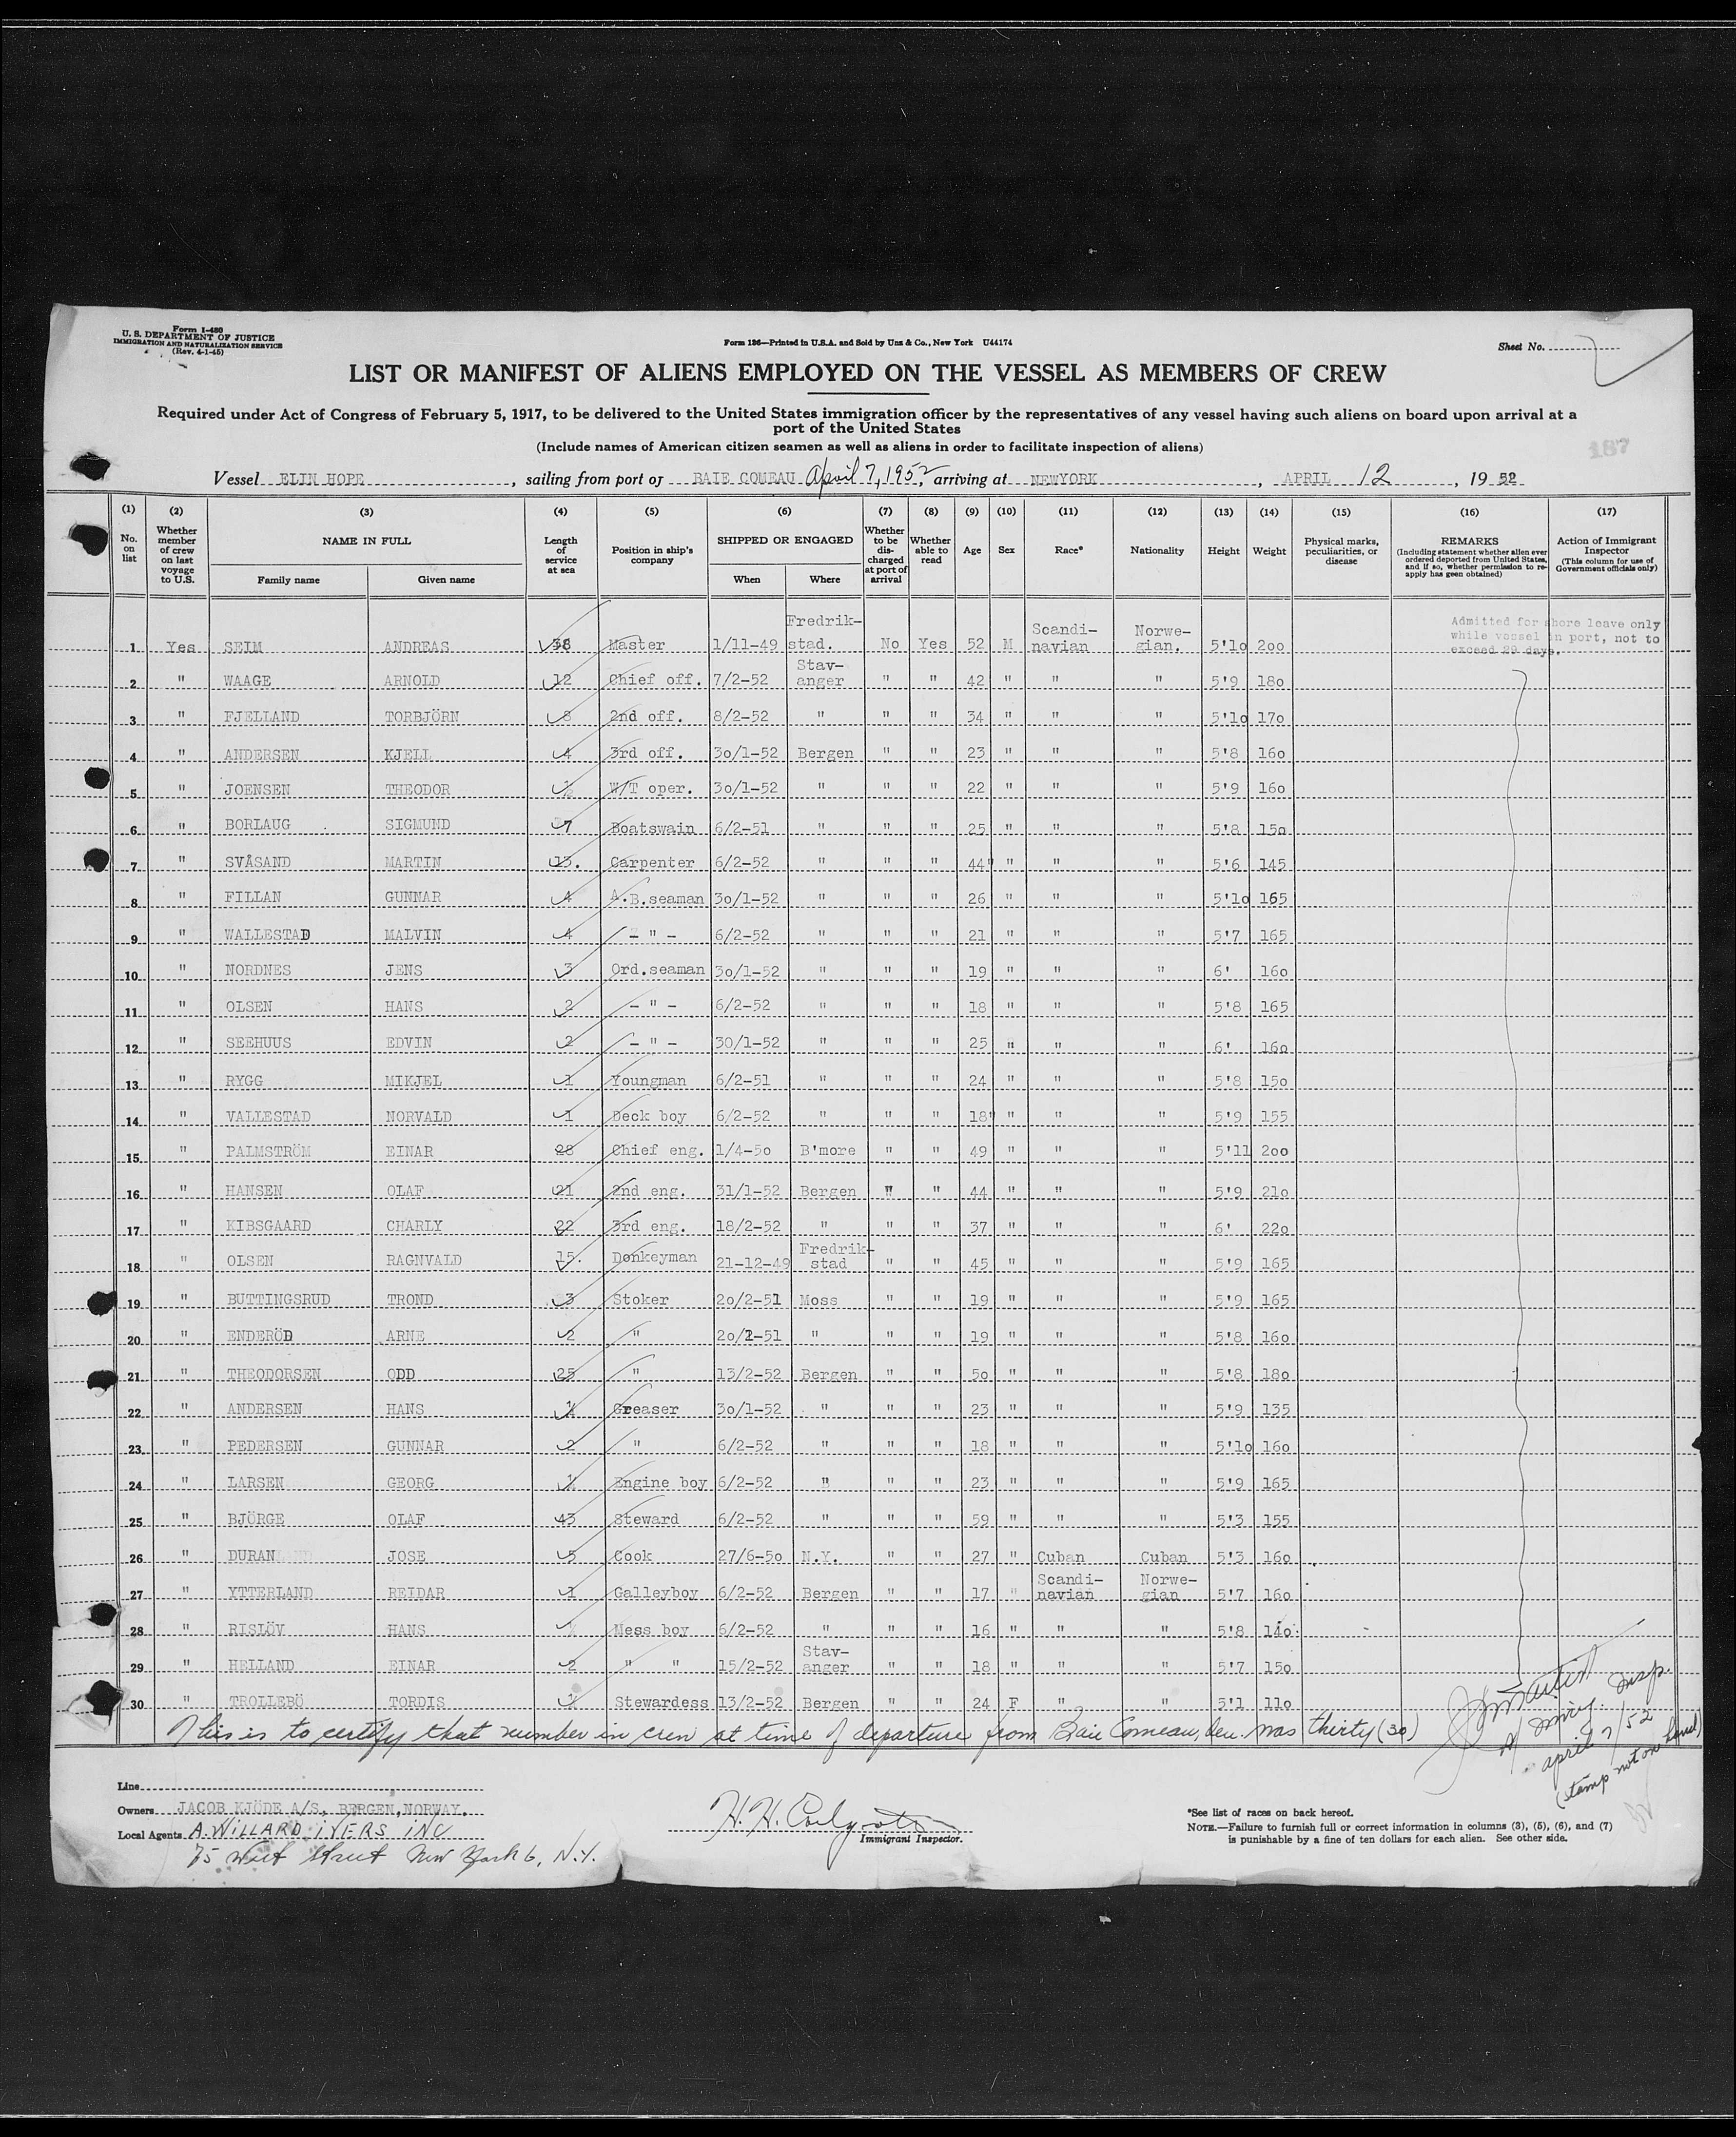 Form I-480
U. S. DEPARTMENT OF JUSTICE
IMMIGRATION AND NATURALIZATION SERVICE
(Rev. 4-1-45)
Form 186—Printed in U.S.A. and Sold by Unz & Co., New York U44174
Sheet No.
LIST OR MANIFEST OF ALIENS EMPLOYED ON THE VESSEL AS MEMBERS OF CREW
Required under Act of Congress of February 5, 1917, to be delivered to the United States immigration officer by the representatives of any vessel having such aliens on board upon arrival at a
port of the United States
(Include names of American citizen seamen as well as aliens in order to facilitate inspection of aliens)
187
Vessel ELIN HOPE, sailing from port of BAIE COMEAU April 7, 1952, arriving at NEWYORK, APRIL 12, 19 52
(1) No. on list
(2) Whether member of crew on last voyage to U.S.
(3) NAME IN FULL Family name Given name
(4) Length of service at sea
(5) Position in ship's company
(6) SHIPPED OR ENGAGED When Where
(7) Whether to be discharged at port of arrival
(8) Whether able to read
(9) Age
(10) Sex
(11) Race*
(12) Nationality
(13) Height
(14) Weight
(15) Physical marks, peculiarities, or disease
(16) REMARKS (Including statement whether alien ever ordered deported from United States, and if so, whether permission to re-apply has geen obtained)
(17) Action of Immigrant Inspector (This column for use of Government officials only)
1 Yes SEIM ANDREAS 38 Master 1/11-49 Fredrik-stad. No Yes 52 M Scandi-navian Norwe-gian. 5'10 200
Admitted for shore leave only
while vessel in port, not to
exceed 29 days.
2 " WAAGE ARNOLD 12 Chief off. 7/2-52 Stav-anger " " 42 " " " 5'9 180
3 " FJELLAND TORBJÖRN 8 2nd off. 8/2-52 " " " 34 " " " 5'10 170
4 " ANDERSEN KJELL 4 3rd off. 30/1-52 Bergen " " 23 " " " 5'8 160
5 " JOENSEN THEODOR ½ W/T oper. 30/1-52 " " " 22 " " " 5'9 160
6 " BORLAUG SIGMUND 7 Boatswain 6/2-51 " " " 25 " " " 5'8 150
7 " SVÅSAND MARTIN 13. Carpenter 6/2-52 " " " 44 " " " 5'6 145
8 " FILLAN GUNNAR 4 A.B.seaman 30/1-52 " " " 26 " " " 5'10 165
9 " WALLESTAD MALVIN 4 - " - 6/2-52 " " " 21 " " " 5'7 165
10 " NORDNES JENS 3 Ord.seaman 30/1-52 " " " 19 " " " 6' 160
11 " OLSEN HANS 2 - " - 6/2-52 " " " 18 " " " 5'8 165
12 " SEEHUUS EDVIN 2 - " - 30/1-52 " " " 25 " " " 6' 160
13 " RYGG MIKJEL 1 Youngman 6/2-51 " " " 24 " " " 5'8 150
14 " VALLESTAD NORVALD 1 Deck boy 6/2-52 " " " 18 " " " 5'9 155
15 " PALMSTRÖM EINAR 28 Chief eng. 1/4-50 B'more " " 49 " " " 5'11 200
16 " HANSEN OLAF 21 2nd eng. 31/1-52 Bergen " " 44 " " " 5'9 210
17 " KIBSGAARD CHARLY 22 3rd eng. 18/2-52 " " " 37 " " " 6' 220
18 " OLSEN RAGNVALD 15. Donkeyman 21-12-49 Fredrik-stad " " 45 " " " 5'9 165
19 " BUTTINGSRUD TROND 3 Stoker 20/2-51 Moss " " 19 " " " 5'9 165
20 " ENDERÖD ARNE 2 " 20/2-51 " " " 19 " " " 5'8 160
21 " THEODORSEN ODD 25 " 13/2-52 Bergen " " 50 " " " 5'8 180
22 " ANDERSEN HANS Greaser 30/1-52 " " " 23 " " " 5'9 135
23 " PEDERSEN GUNNAR 2 " 6/2-52 " " " 18 " " " 5'10 160
24 " LARSEN GEORG Engine boy 6/2-52 " " " 23 " " " 5'9 165
25 " BJÖRGE OLAF 43 Steward 6/2-52 " " " 59 " " " 5'3 155
26 " DURAN JOSE 5 Cook 27/6-50 N.Y. " " 27 " Cuban Cuban 5'3 160
27 " YTTERLAND REIDAR 1 Galleyboy 6/2-52 Bergen " " 17 " Scandi-navian Norwe-gian 5'7 160
28 " RISLÖV HANS Mess boy 6/2-52 " " " 16 " " " 5'8 140
29 " HELLAND EINAR 2 " " 15/2-52 Stav-anger " " 18 " " " 5'7 150
30 " TROLLEBÖ TORDIS 1 Stewardess 13/2-52 Bergen " " 24 F " " 5'1 110
This is to certify that number in crew at time of departure from Baie Comeau, was thirty (30)
Insp.
april 7/52
(stamp not on hand)
Line
Owners JACOB KJÖDE A/S, BERGEN, NORWAY.
Local Agents A. WILLARD IVERS INC
75 West Street New York 6, N.Y.
H. H.
Immigrant Inspector.
*See list of races on back hereof.
NOTE.—Failure to furnish full or correct information in columns (3), (5), (6), and (7)
is punishable by a fine of ten dollars for each alien. See other side.